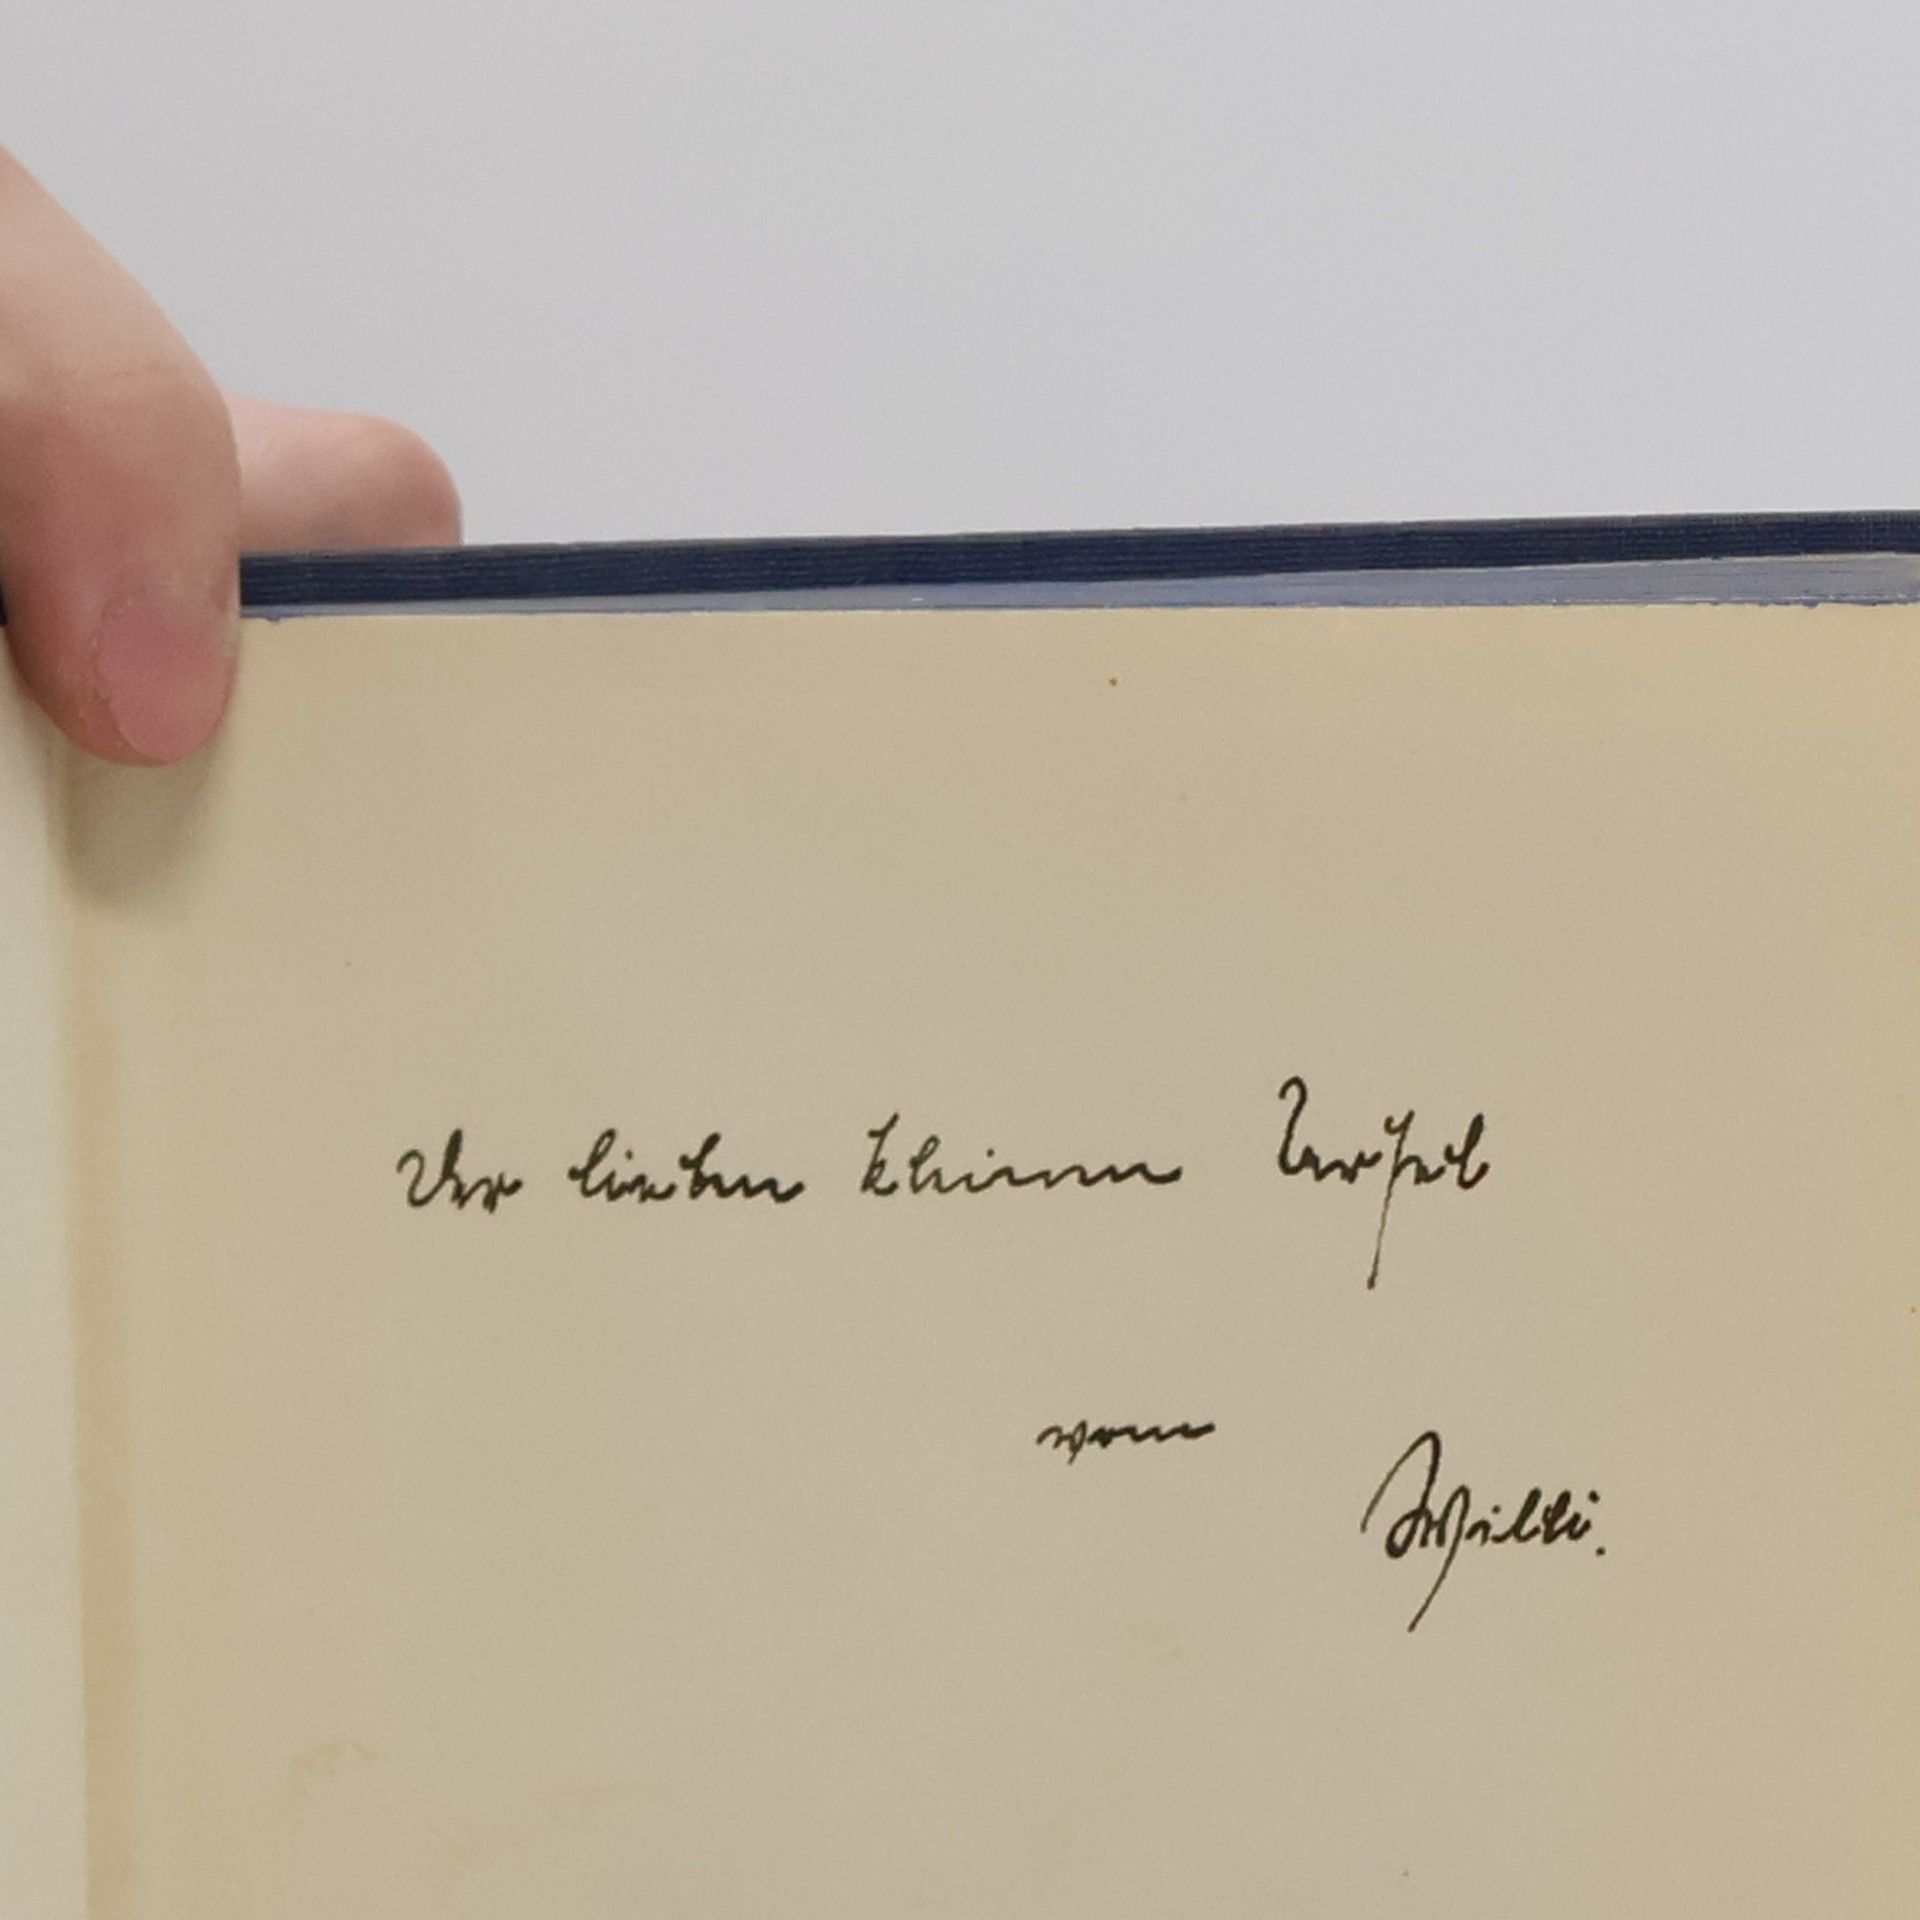 Der lieben kleinen Ursel
vom
Willi.